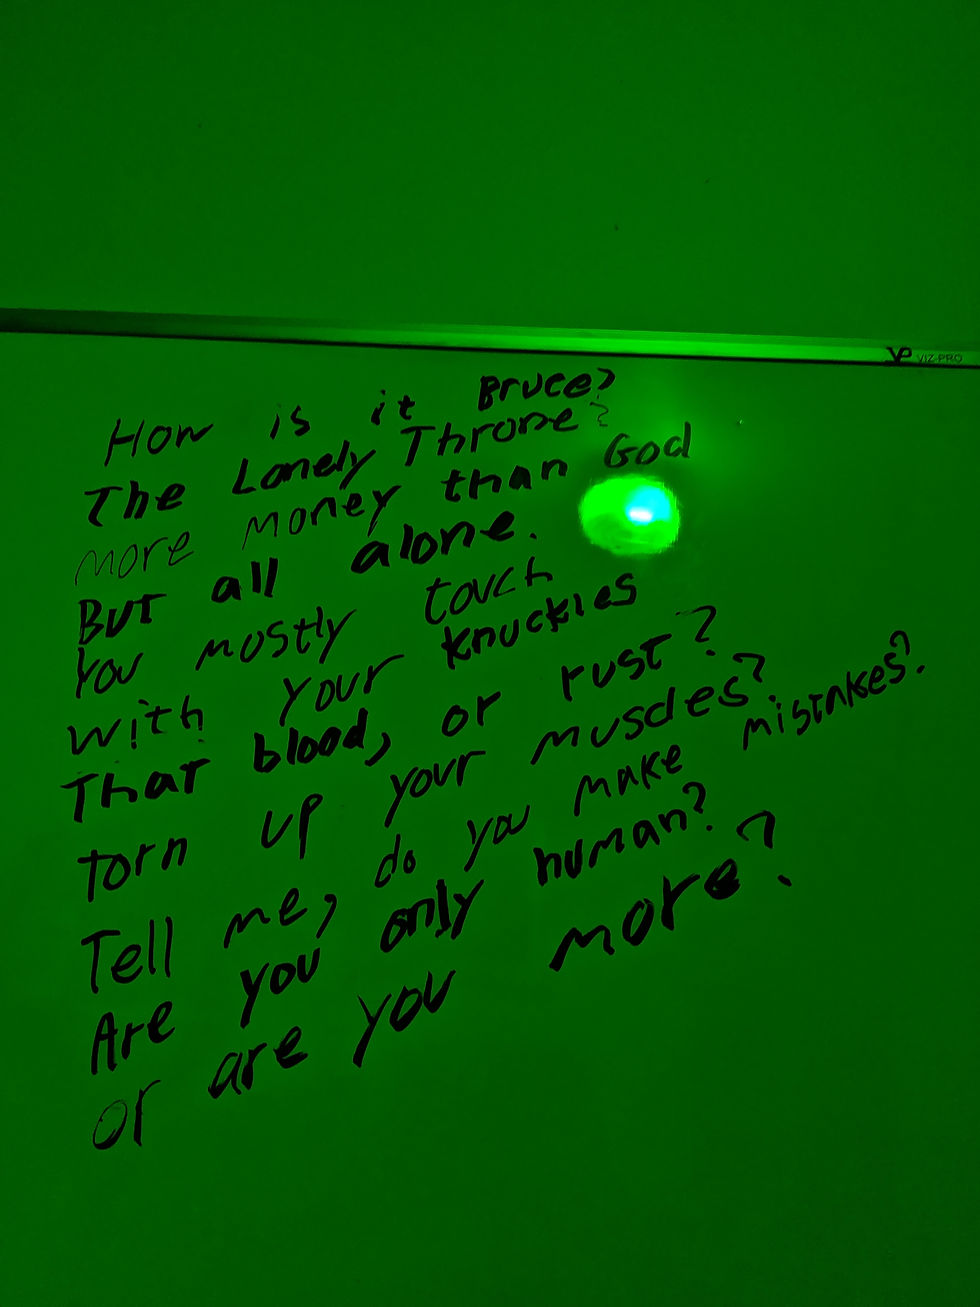 VP VIZ-PRO
How is it Bruce?
The Lonely Throne?
more money than God
But all alone.
You mostly touch
with your knuckles
That blood, or rust?
torn up your muscles?
Tell me, do you make mistakes?
Are you only human?
or are you more?